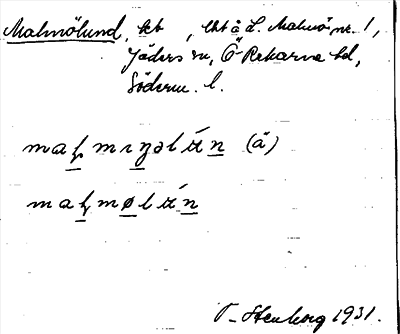 Malmölund, tct , lht å L. Malmö nr. 1,
Jäders sn, Ö Rekarne hd,
Söderm. l.
maḷmıŋəlán (ä)
maḷmølán
Stenborg 1931.